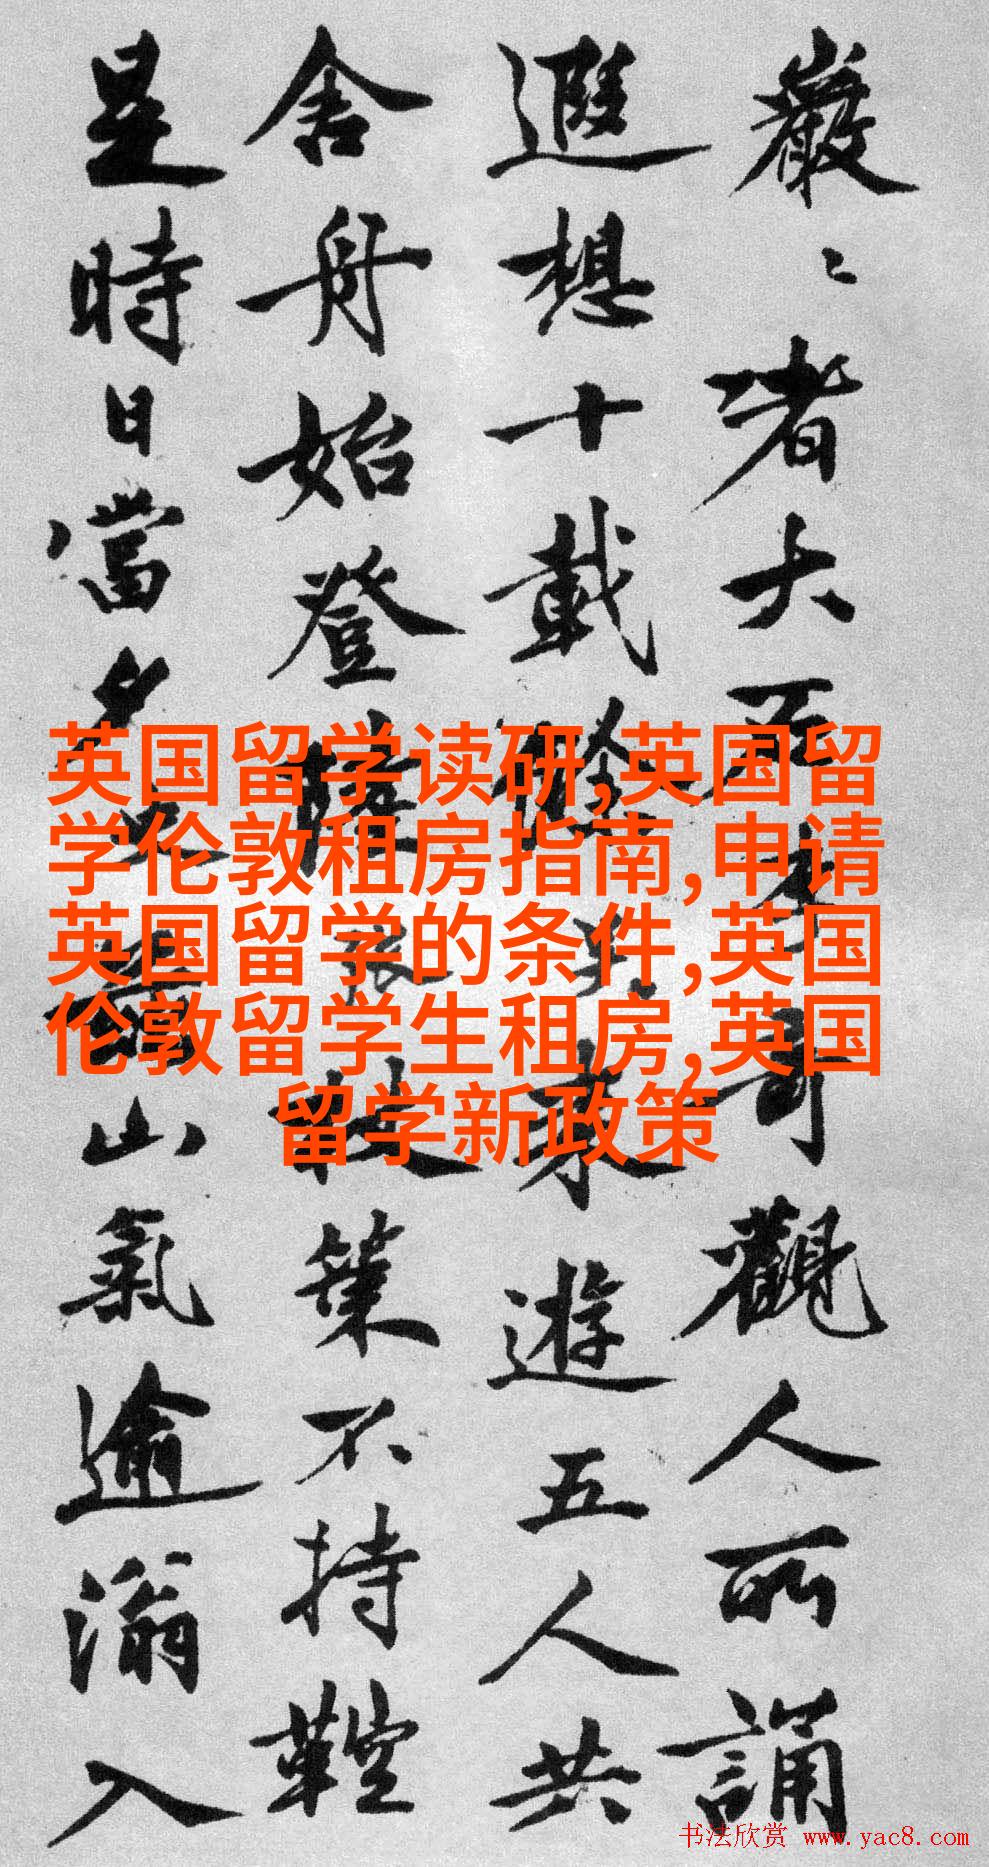 巖〻者大可觀人所誦
遐想十載來遊五人共
舍舟始登陸杖策不持鞚
是時日當夕山氣逾滃入
英国留学读研,英国留
学伦敦租房指南,申请
英国留学的条件,英国
伦敦留学生租房,英国
留学新政策
书法欣赏 www.yac8.com